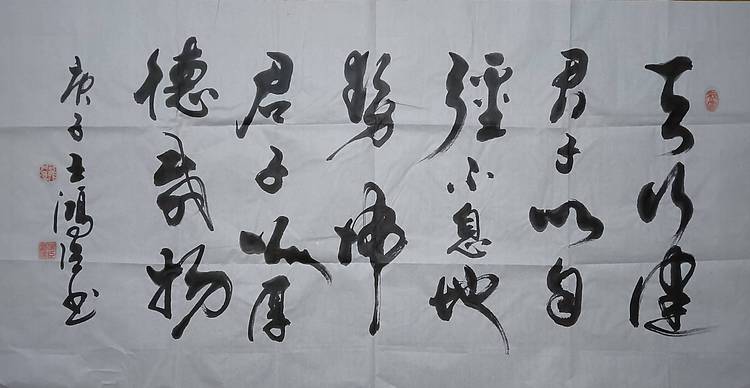 天行健
君子以自
彊不息地
势坤
君子以厚
德载物
庚子王鸿书